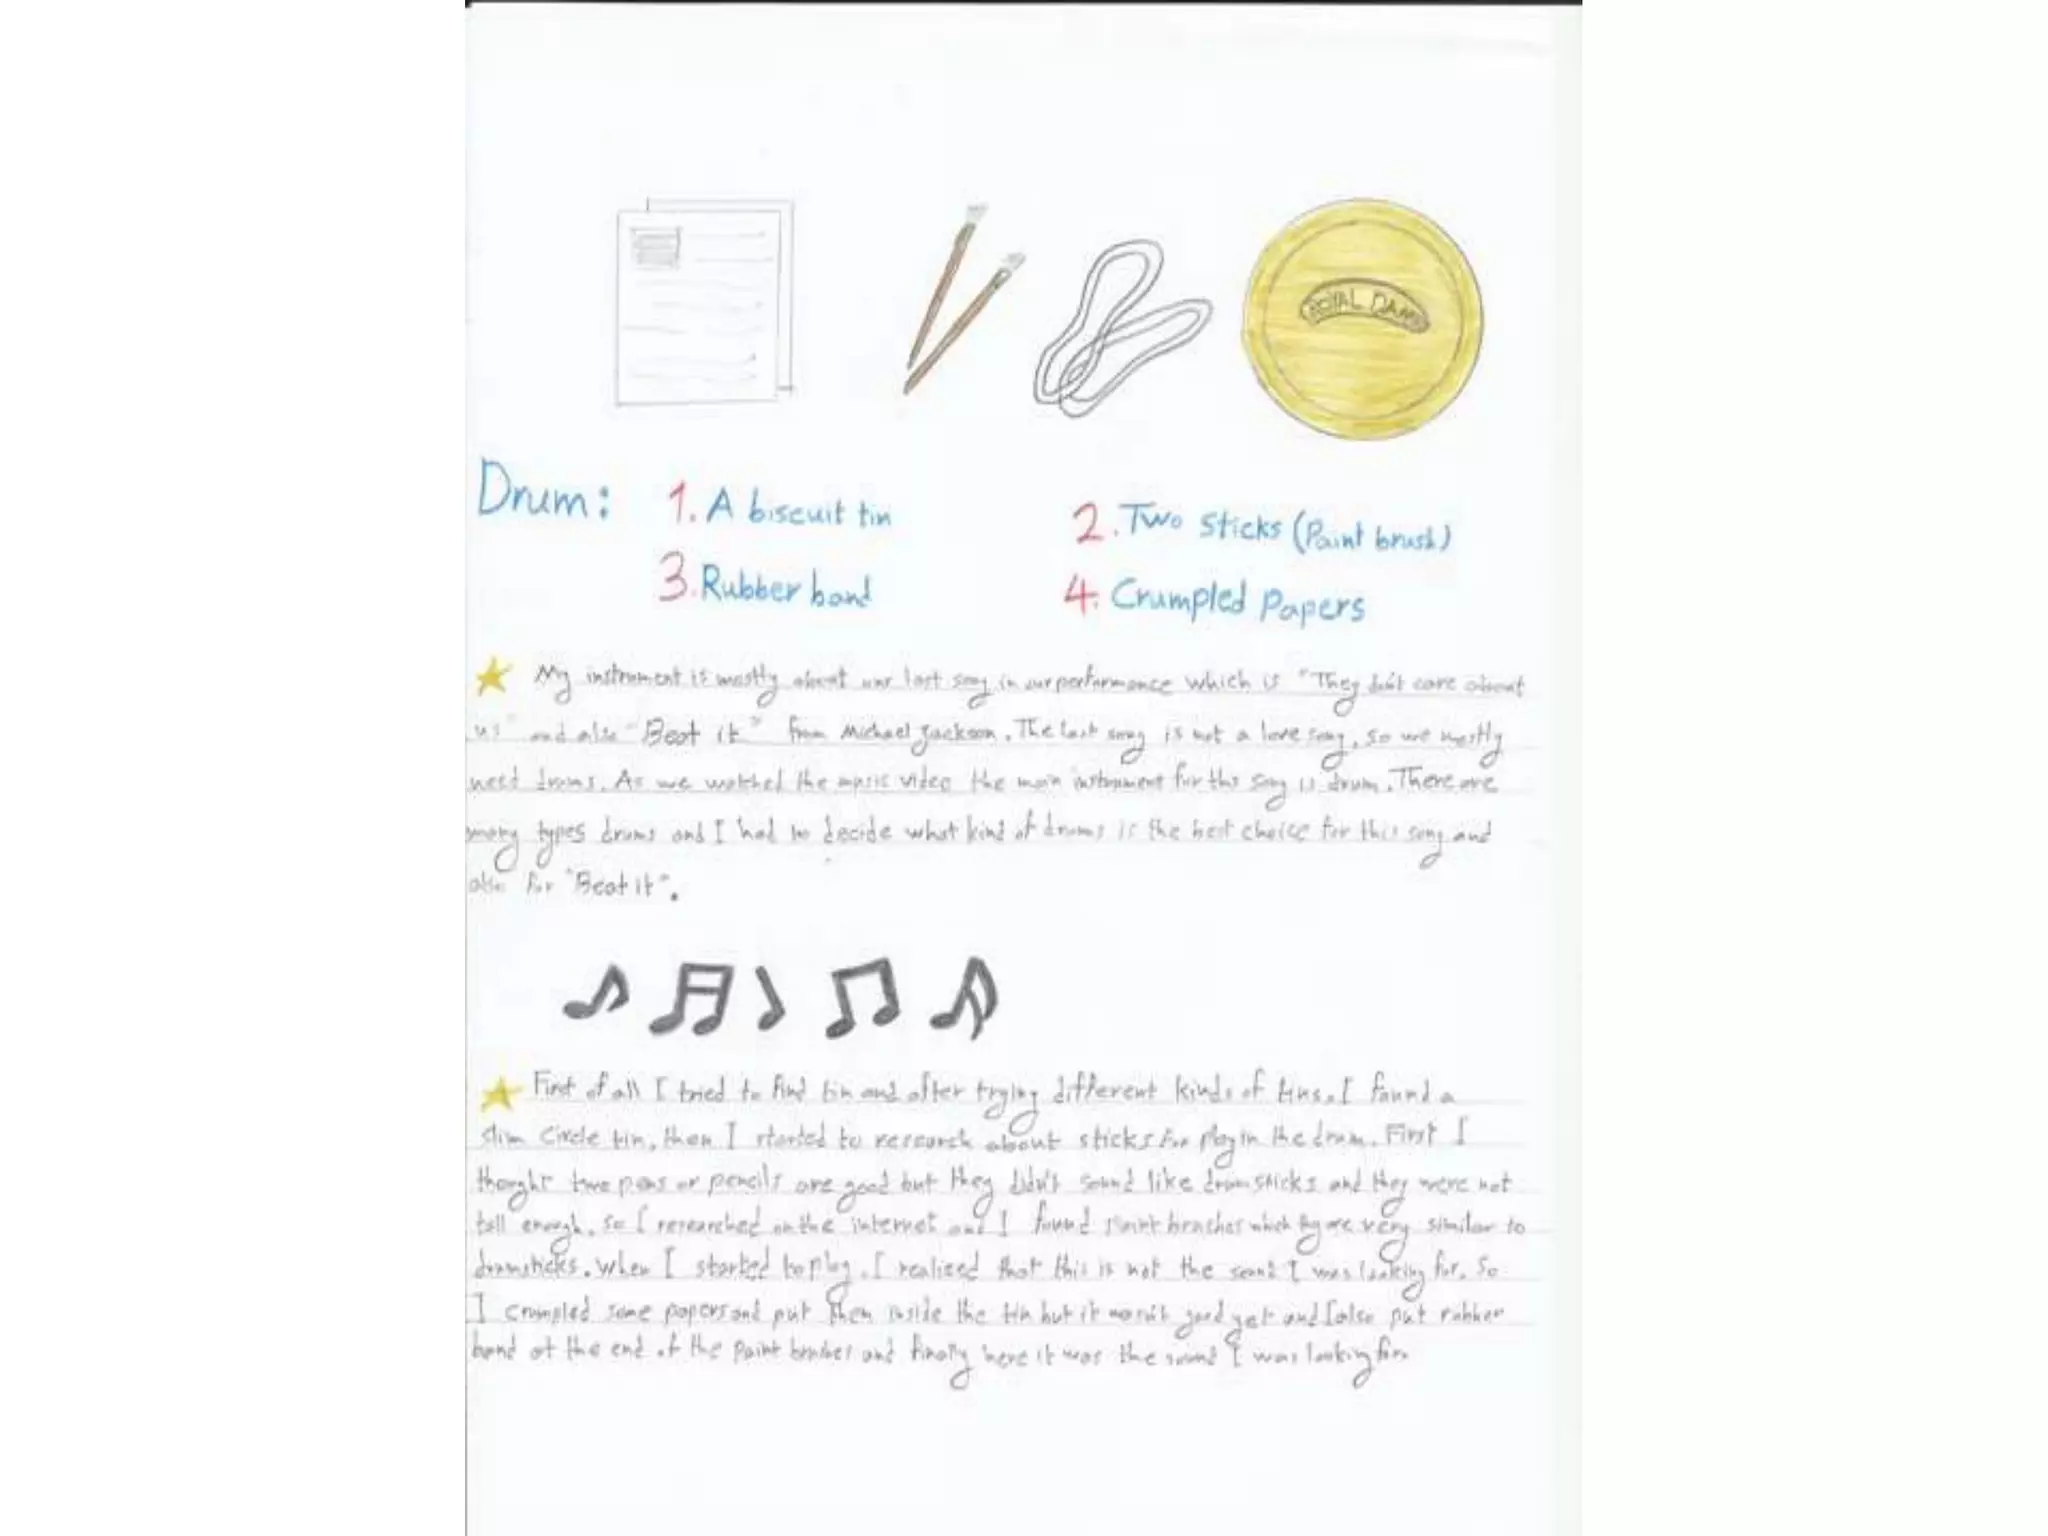 ROYAL DANS
Drum: 1. A biscuit tin 2. Two sticks (Paint brush)
3. Rubber band 4. Crumpled Papers
My instrument is mostly about our last song in our performance which is "They don't care about
us" and also "Beat it" from Michael Jackson. The last song is not a love song, so we mostly
need drums. As we watched the music video the main instrument for this song is drum. There are
many types drums and I had to decide what kind of drums is the best choice for this song and
also for "Beat it".
First of all I tried to find tin and after trying different kinds of tins, I found a
slim circle tin, then I started to research about sticks for play in the drum. First I
thought two pens or pencils are good but they didn't sound like drum sticks and they were not
tall enough. So I researched on the internet and I found paint brushes which they are very similar to
drumsticks. When I started to play, I realised that this is not the sound I was looking for. So
I crumpled some papers and put them inside the tin but it wasn't good yet and I also put rubber
band at the end of the paint brushes and finally here it was the sound I was looking for.